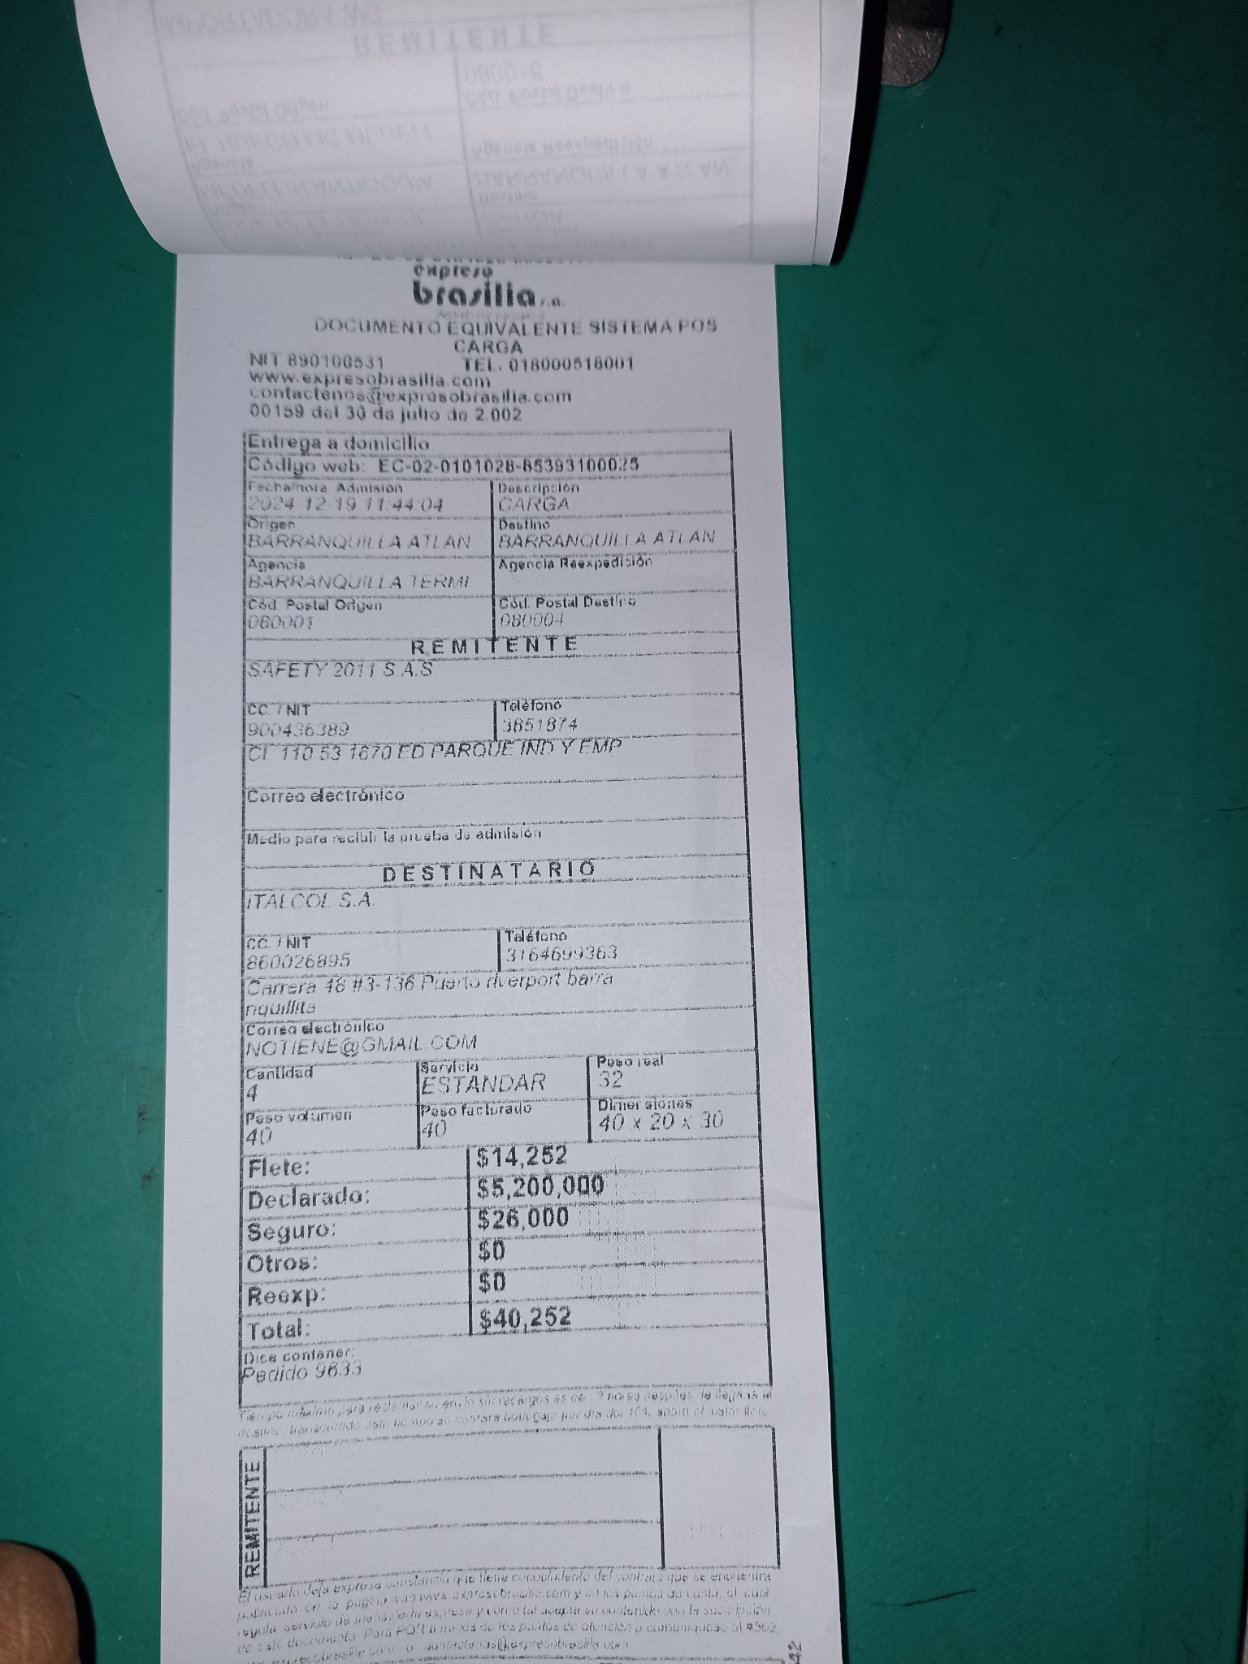 REMITENTE
expreso
brasilia s.a.
DOCUMENTO EQUIVALENTE SISTEMA POS
CARGA
NIT 890100531 TEL. 018000518001
www.expresobrasilia.com
contactenos@expresobrasilia.com
00159 del 30 de julio de 2.002
Entrega a domicilio
Código web: EC-02-0101028-85393100025
Fecha/hora Admisión Descripción
2024-12-19 11:44:04 CARGA
Origen Destino
BARRANQUILLA ATLAN BARRANQUILLA ATLAN
Agencia Agencia Reexpedición
BARRANQUILLA TERMI
Cód. Postal Origen Cód. Postal Destino
080001 080004
REMITENTE
SAFETY 2011 S.A.S
CC. / NIT Teléfono
900436389 3851874
CL 110 53 1670 ED PARQUE IND Y EMP
Correo electrónico
Medio para recibir la prueba de admisión
DESTINATARIO
ITALCOL S.A.
CC. / NIT Teléfono
860026895 3164699363
Carrera 48 #3-136 Puerto riverport barra
nquillita
Correo electrónico
NOTIENE@GMAIL.COM
Cantidad Servicio Peso real
4 ESTANDAR 32
Peso volumen Peso facturado Dimensiones
40 40 40 x 20 x 30
Flete: $14,252
Declarado: $5,200,000
Seguro: $26,000
Otros: $0
Reexp: $0
Total: $40,252
Dice contener:
Pedido 9633
Tiempo máximo para reclamar su envío sin recargos es de horas después de llegada al
destino, transcurrido este tiempo se cobrará bodegaje por día del 10% sobre el valor flete
REMITENTE
El usuario deja expresa constancia que tiene conocimiento del contrato que se encuentra
publicado en la página web www.expresobrasilia.com y en los puntos de venta, el cual
regula servicio de mensajería expresa y como tal acepta su contenido con la suscripción
de este documento. Para PQR a través de los puntos de atención o comuníquese al #502